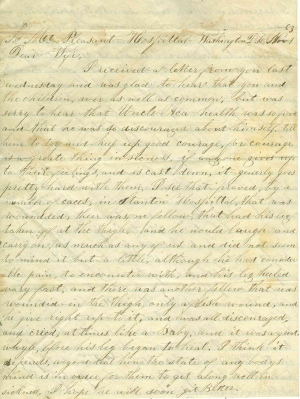 63
Mt Pleasant Hospital Washington D.C. Nov
Dear Wife,
I received a letter from you last
wednesday and was glad to hear that you and
the children, was as well as common, but was
sorry to hear that Uncle health was so poor
and that he was so discouraged about himself, tell
them to try and keep up good courage, for courage
is a great thing in sickness, if any one gives up
to their feelings, and is cast down, it generly goes
pretty hard with them, I see that proved, by a
number of cases, in Stanton Hospital, that was
wounded, there was one fellow, that had his leg
taken off at the thigh, and he would laugh and
carry on, as much as any of us, and did not seem
to mind it but a little, although he had considerable
pain, to encounter with, and his leg healed
very fast, and there was another fellow that was
wounded in the thigh, only a flesh wound, and
he give right up to it, and was all discouraged,
and cried, at times like a Baby, and it was a good
while, before his leg began to heal. I think it
depends, a good deal how the state of any body's
mind is in, for them to get along well in
sickness, I hope he will soon get Better